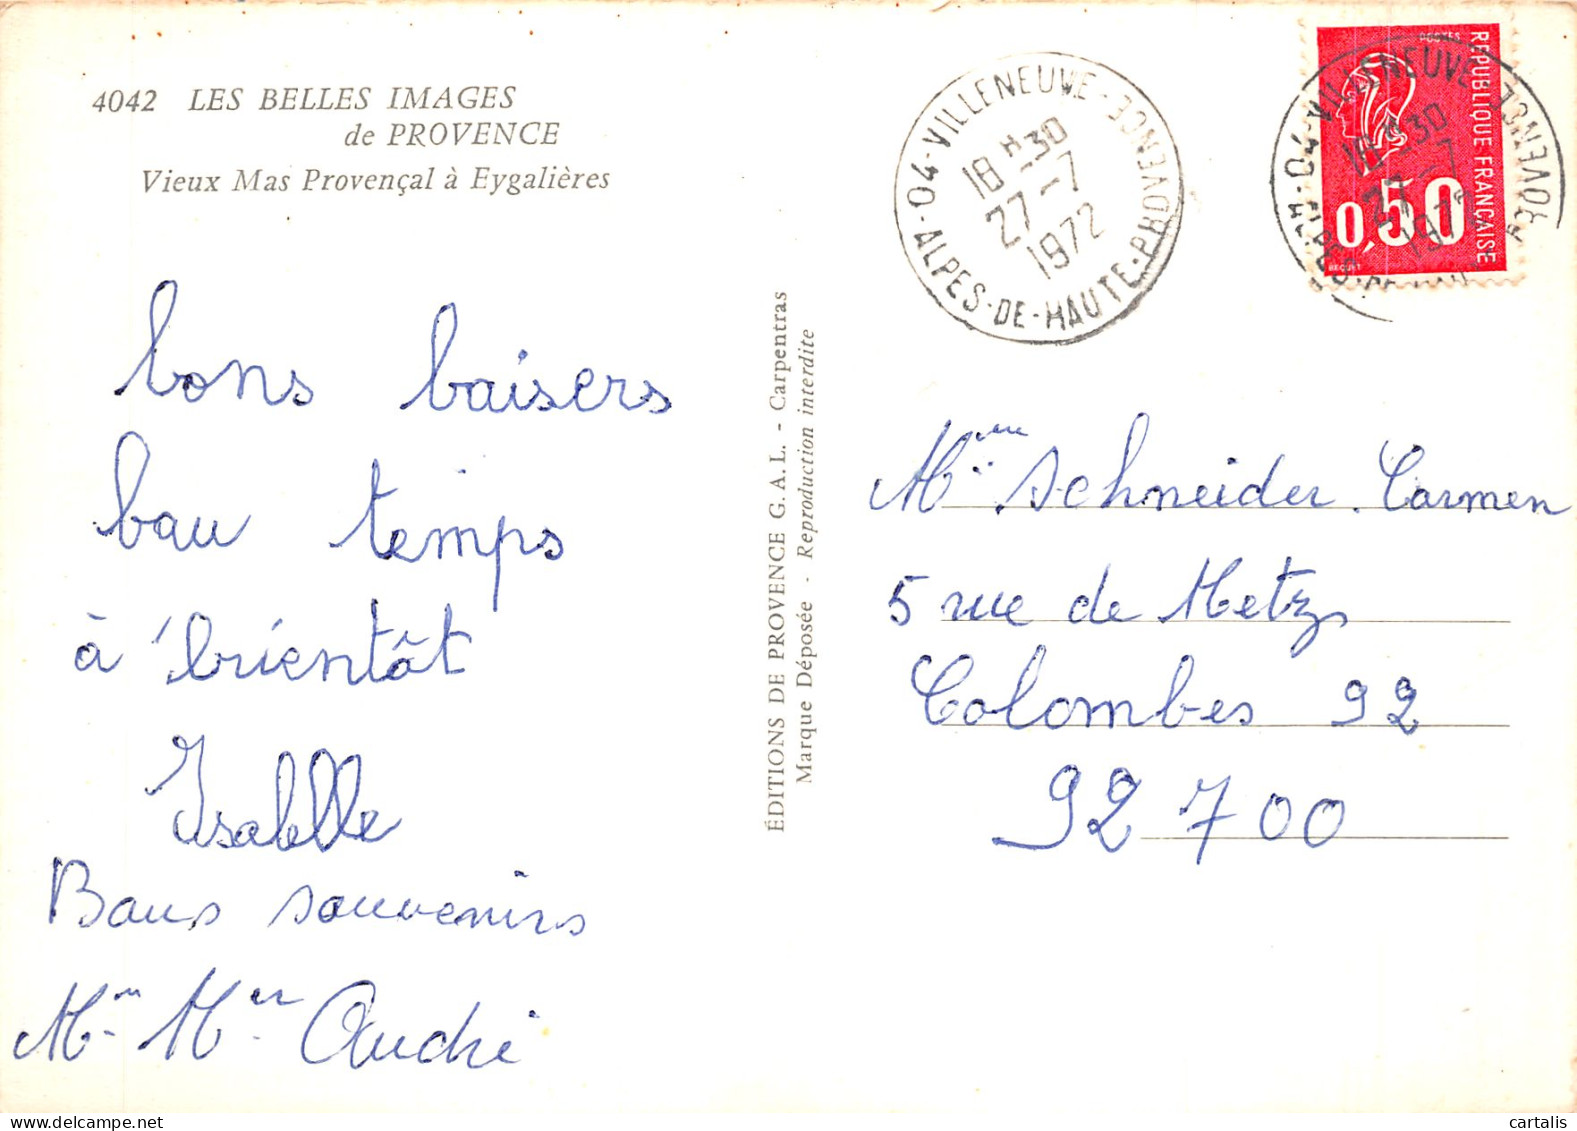 4042 LES BELLES IMAGES
de PROVENCE
Vieux Mas Provençal à Eygalières
bons baisers
bau temps
à 'brientât
Isabelle
Bons souvenirs
Mme Mer André
ÉDITIONS DE PROVENCE G.A.L. - Carpentras
Marque Déposée - Reproduction interdite
04-VILLENEUVE-
18H-30
27-7
1972
ALPES-DE-HAUTE-PROVENCE
POSTES
RÉPUBLIQUE FRANÇAISE
0,50
BEQUET
04-VILLENEUVE
18H-30
27-7
1972
Mme Schneider. Carmen
5 rue de Metz
Colombes 92
92 700
cartalis